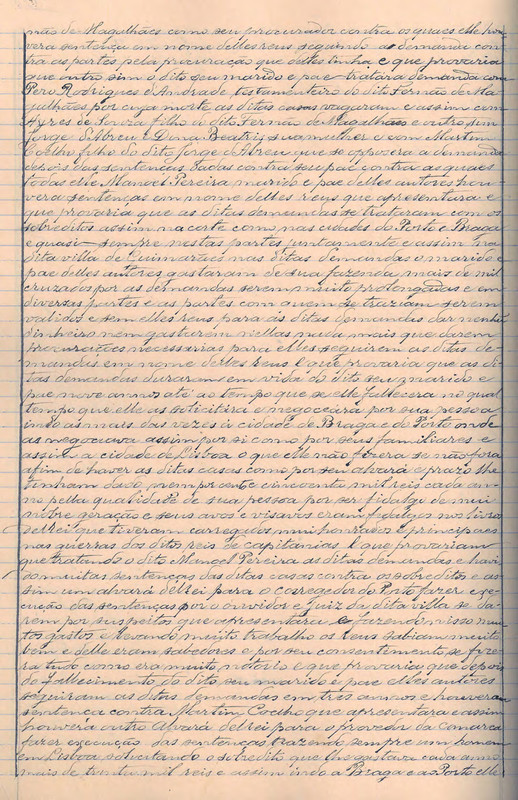 não de Magalhães como seu procurador contra os quaes elle hou-
vera sentença em nome delles reus seguindo as demandas con-
tra as partes pela procuração que delles tinha e que provaria
que outro sim o dito seu marido e pae tratara demanda com
Pero Rodrigues d'Andrade, testamenteiro do dito Fernão de Ma-
galhães por cuja morte as ditas casas vagaram e assim com
Ayres de Souza filho do dito Fernão de Magalhães e outro sim
Jorge d'Abreu e Dona Beatris, sua mulher e com Martim
Coelho filho do dito Jorge d'Abreu que se oppozera a demanda
depois das sentenças dadas contra seu pae contra as quaes
todas elle Manoel Pereira marido e pae delles autores hou-
vera sentenças em nome delles reus que apresentara e
que provaria que as ditas demandas se trataram com os
sobreditos assim na corte como nas cidades do Porto e Braga
e quasi sempre nestas partes juntamente e assim na
dita villa de Guimarães nas ditas demandas o marido e
pae delles autores gastaram de sua fazenda mais de mil
cruzados por as demandas serem muito prolongadas e em
diversas partes e as partes com quem se traziam serem
validos e sem elles reus para as ditas demandas dar nenhu
dinheiro nem gastarem nellas nada mais que darem
procurações necessarias para elles seguirem as ditas de-
mandas em nome delles reus e que provaria que as di-
tas demandas duraram em vida do dito seu marido e
pae nove annos até ao tempo que se elle fallecera no qual
tempo que elle as solicitára e negoceára por sua pessoa
indo as mais das vezes á cidade de Braga e do Porto onde
as negociava assim por si como por seus familiares e
assim a cidade de Lisboa o que elle não fizera se não fora
afim de haver as ditas casas como por seu alvará e prazo lhe
tinham dado nem por sento e cincoenta mil reis cada an-
no pella qualidade de sua pessoa por ser fidalgo de mui
nobre geração e seus avós e visavós eram fidalgos nos livros
delrei que tiveram carregos mui honrados e principaes
nas guerras dos ditos reis de capitanias e que provariam
que tratando o dito Manoel Pereira as ditas demandas e havi
do muitas sentenças das ditas casas contra os sobreditos e as-
sim um alvará delrei para o corregedor do Porto fazer exe-
cução das sentenças por o ouvidor e juiz da dita villa se da-
rem por suspeitos que apresentára e fazendo nisso mui-
tos gastos e levando muito trabalho os reus sabiam muito
bem e delle eram sabedores e por seu consentimento se fize-
ra tudo como era muito notorio e que provaria que depois
do fallecimento do dito seu marido e pae elles autores
seguiram as ditas demandas em três annos e houveram
sentença contra Martim Coelho que apresentara e assim
houvera outro Alvará delrei para o provedor da comarca
fazer execução das sentenças trazendo sempre um homem
em Lisboa solicitando o sobredito que lhe gastava cada anno
mais de trinta mil reis e assim indo a Braga e ao Porto elle